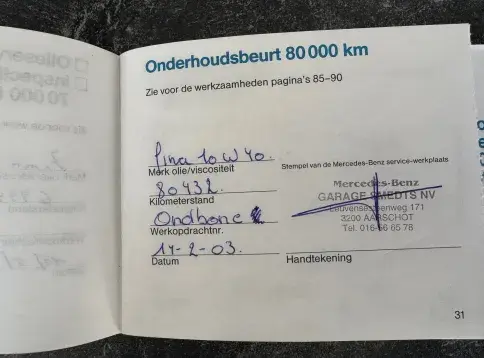 Onderhoudsbeurt 80 000 km
Zie voor de werkzaamheden pagina's 85-90
10 W 40.
Merk olie/viscositeit
Stempel van de Mercedes-Benz service-werkplaats
80432.
Kilometerstand
Mercedes-Benz
GARAGE SMEDTS NV
Leuvensesteenweg 171
3200 AARSCHOT
Tel. 016-56 65 78
Werkopdrachtnr.
14-2-03.
Datum
Handtekening
31